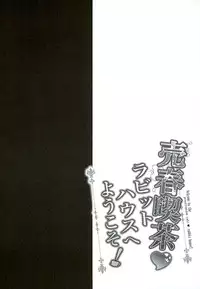 売春喫茶
ラビット
ハウスへ
ようこそ!